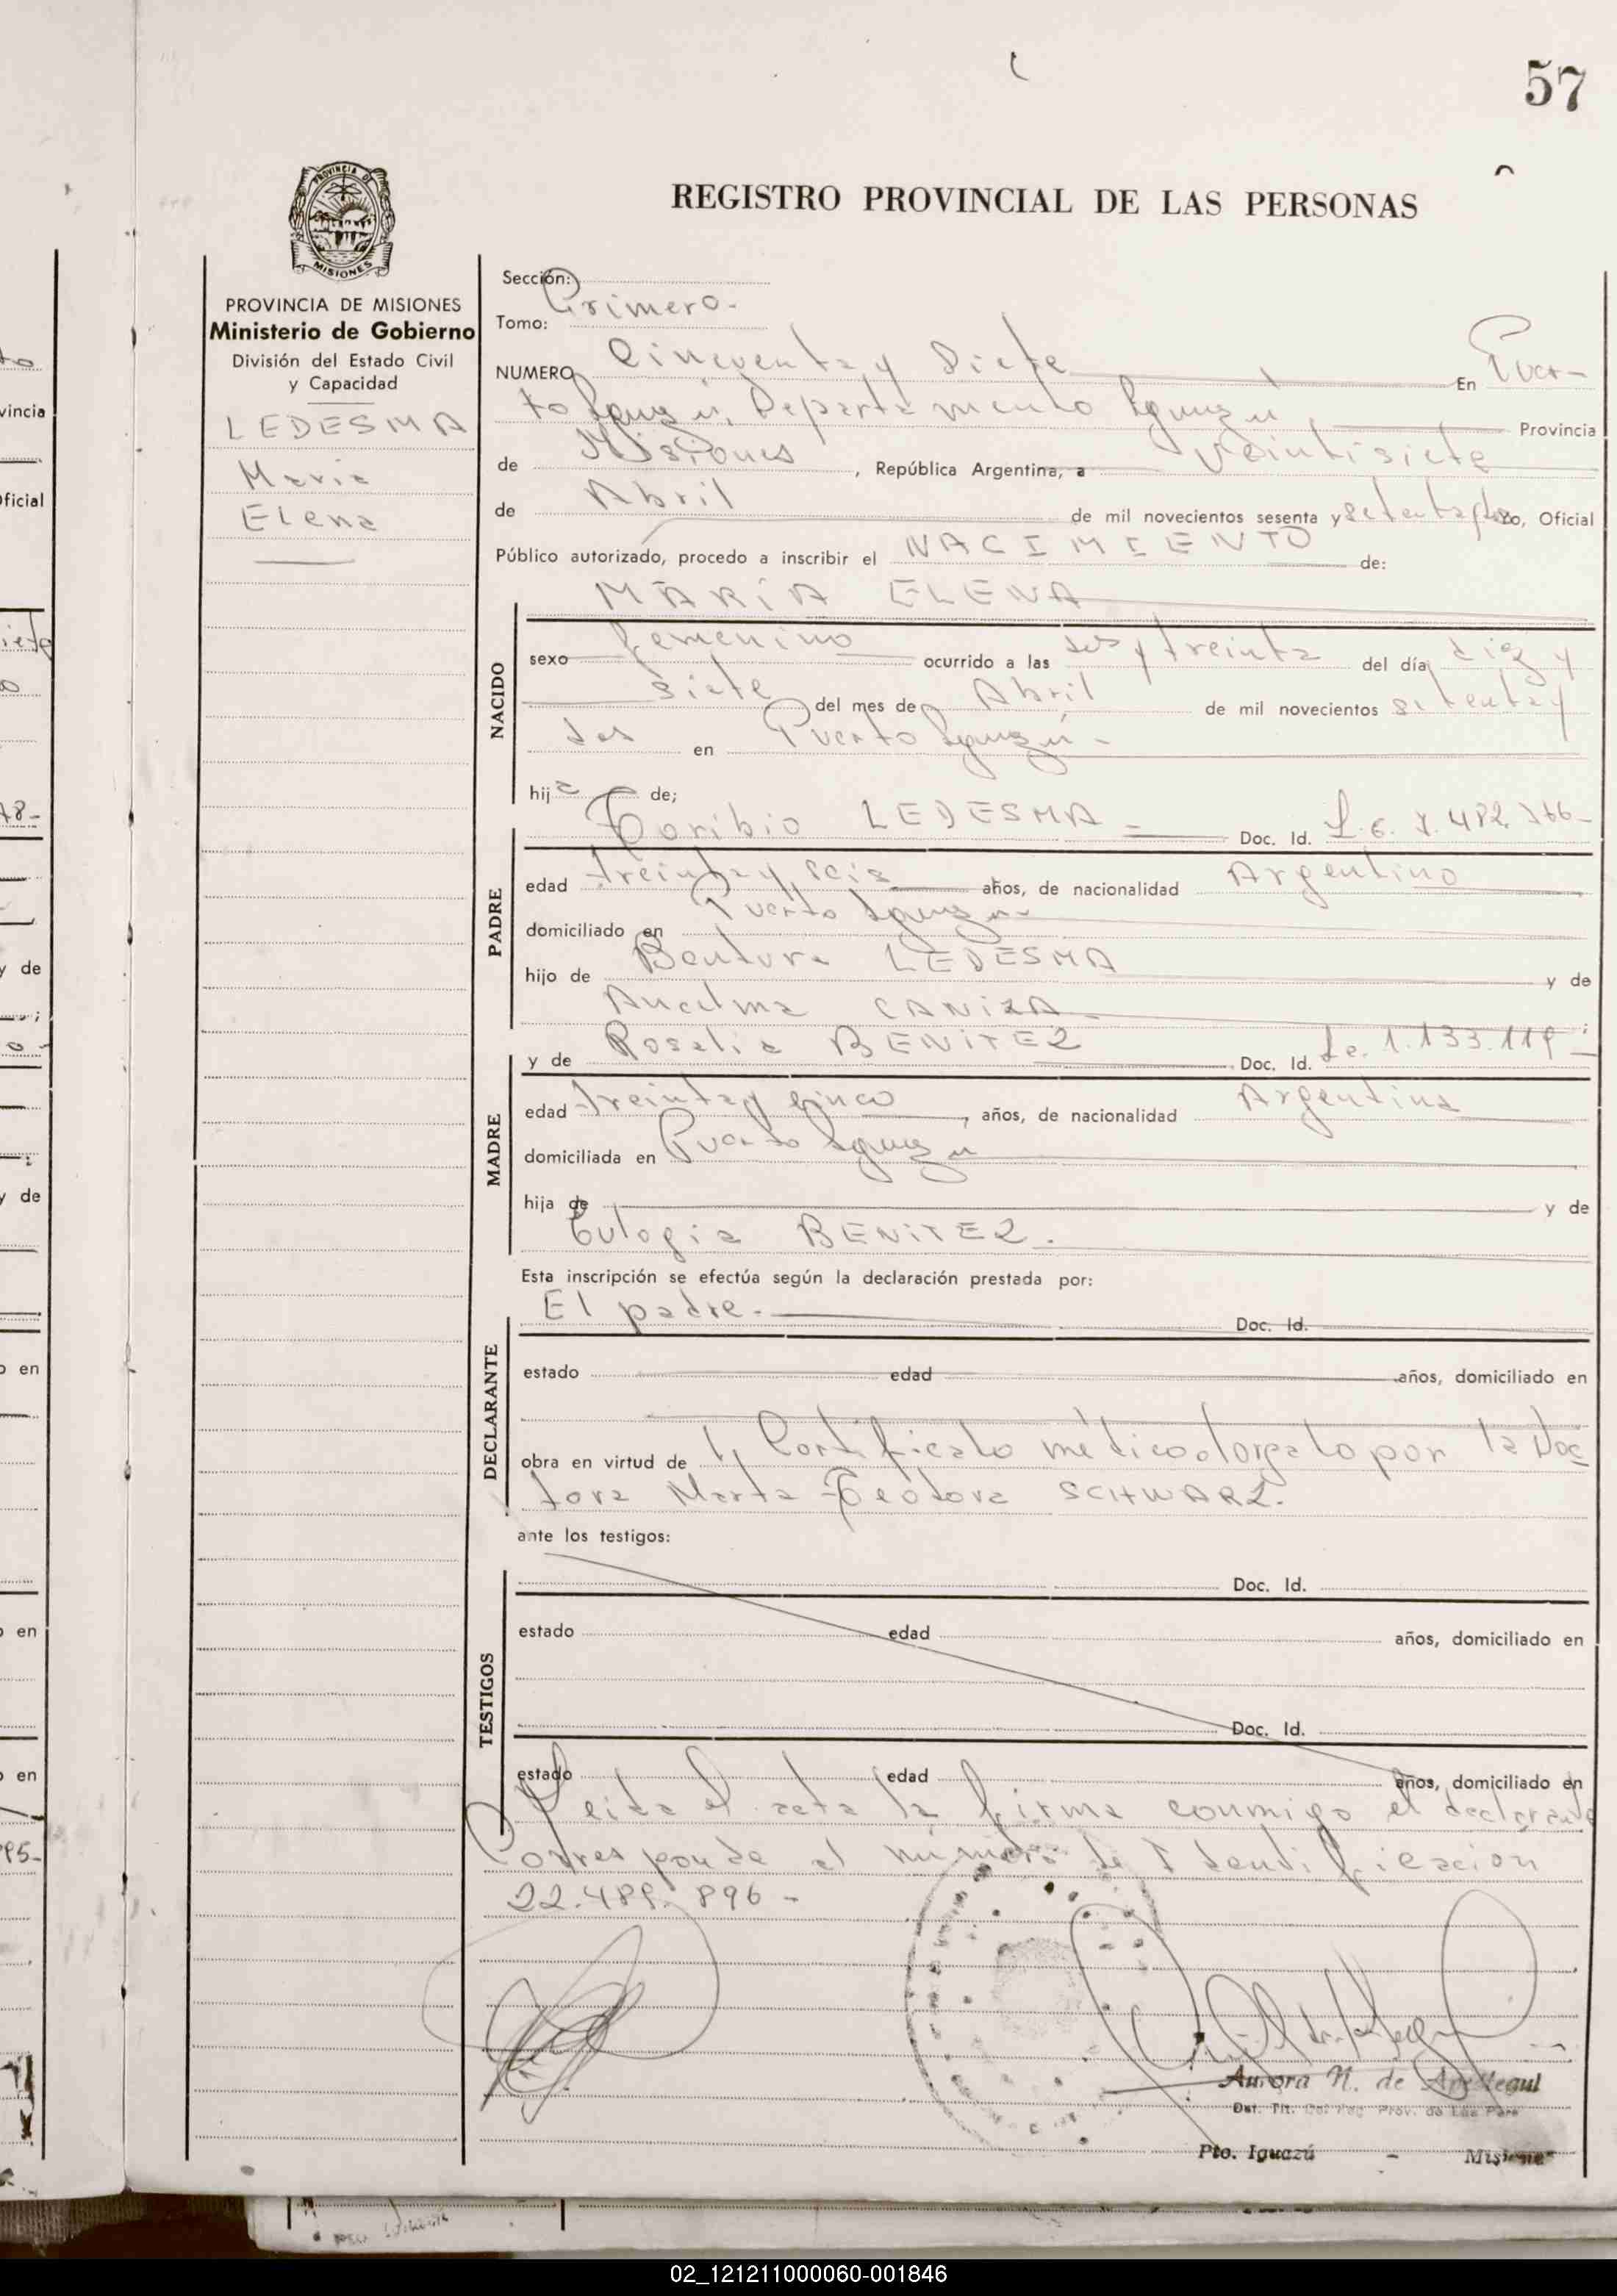 57
REGISTRO PROVINCIAL DE LAS PERSONAS
PROVINCIA DE
MISIONES
PROVINCIA DE MISIONES
Ministerio de Gobierno
División del Estado Civil
y Capacidad
LEDESMA
Maria
Elena
Sección:
Tomo: Primero-
NUMERO Cincuenta y Siete En Puer-
to Iguazú, Departamento Iguazu, Provincia
de Misiones, República Argentina, a Veintisiete
de Abril de mil novecientos sesenta y setenta y dos yo, Oficial
Público autorizado, procedo a inscribir el NACIMIENTO de:
MARÍA ELENA
NACIDO
sexo femenino ocurrido a las dos y treinta del día diez y
siete del mes de Abril de mil novecientos setenta y
dos en Puerto Iguazú-
hija de;
Toribio LEDESMA - Doc. Id.
PADRE
edad treinta y seis años, de nacionalidad Argentino
domiciliado en Puerto Iguazu-
hijo de Bentura LEDESMA y de
Ancelma CANIZA-
y de Rosalia BENITEZ Doc. Id. 1.133.119-
MADRE
edad treinta y cinco, años, de nacionalidad Argentina
domiciliada en Puerto Iguazu
hija de y de
Eulogia BENITEZ.
Esta inscripción se efectúa según la declaración prestada por:
El padre.- Doc. Id.
DECLARANTE
estado edad años, domiciliado en
obra en virtud de Certificato médico otorgato por la Doc
tora Marta Teodora SCHWARZ.
ante los testigos:
Doc. Id.
TESTIGOS
estado edad años, domiciliado en
Doc. Id.
estado edad años, domiciliado en
Leida el acta la firma conmigo el declarante
Corresponde el número de Identificacion
22.489.896-
Aurora N. de
Pto. Iguazú - Misiones
02_121211000060-001846